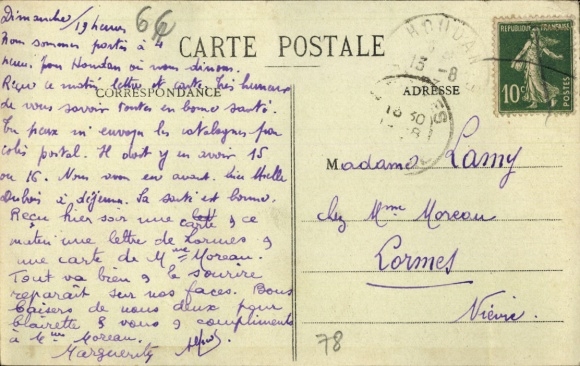 Dimanche / 19 heures
66
Nous sommes partis à 4
heures pour Houdan où nous dinons.
Reçu ce matin lettre et carte. Très heureux
de vous savoir toutes en bonne santé.
Tu peux m'envoyer les catalogues par
colis postal. Il doit y en avoir 15
ou 16. Nous avons eu avant hier Melle
Dubois à déjeuner. Sa santé est bonne.
Reçu hier soir une carte & ce
matin une lettre de Lormes &
une carte de Mme Moreau.
Tout va bien & le sourire
reparaît sur nos faces. Bons
baisers de nous deux pour
Clairette & vous & compliments
à Mme Moreau.
Marguerite
CARTE POSTALE
CORRESPONDANCE
ADRESSE
HOUDAN
13 -8
REPUBLIQUE FRANÇAISE
10c
POSTES
Madame Lamy
chez Mme Moreau
Lormes
Nièvre
78